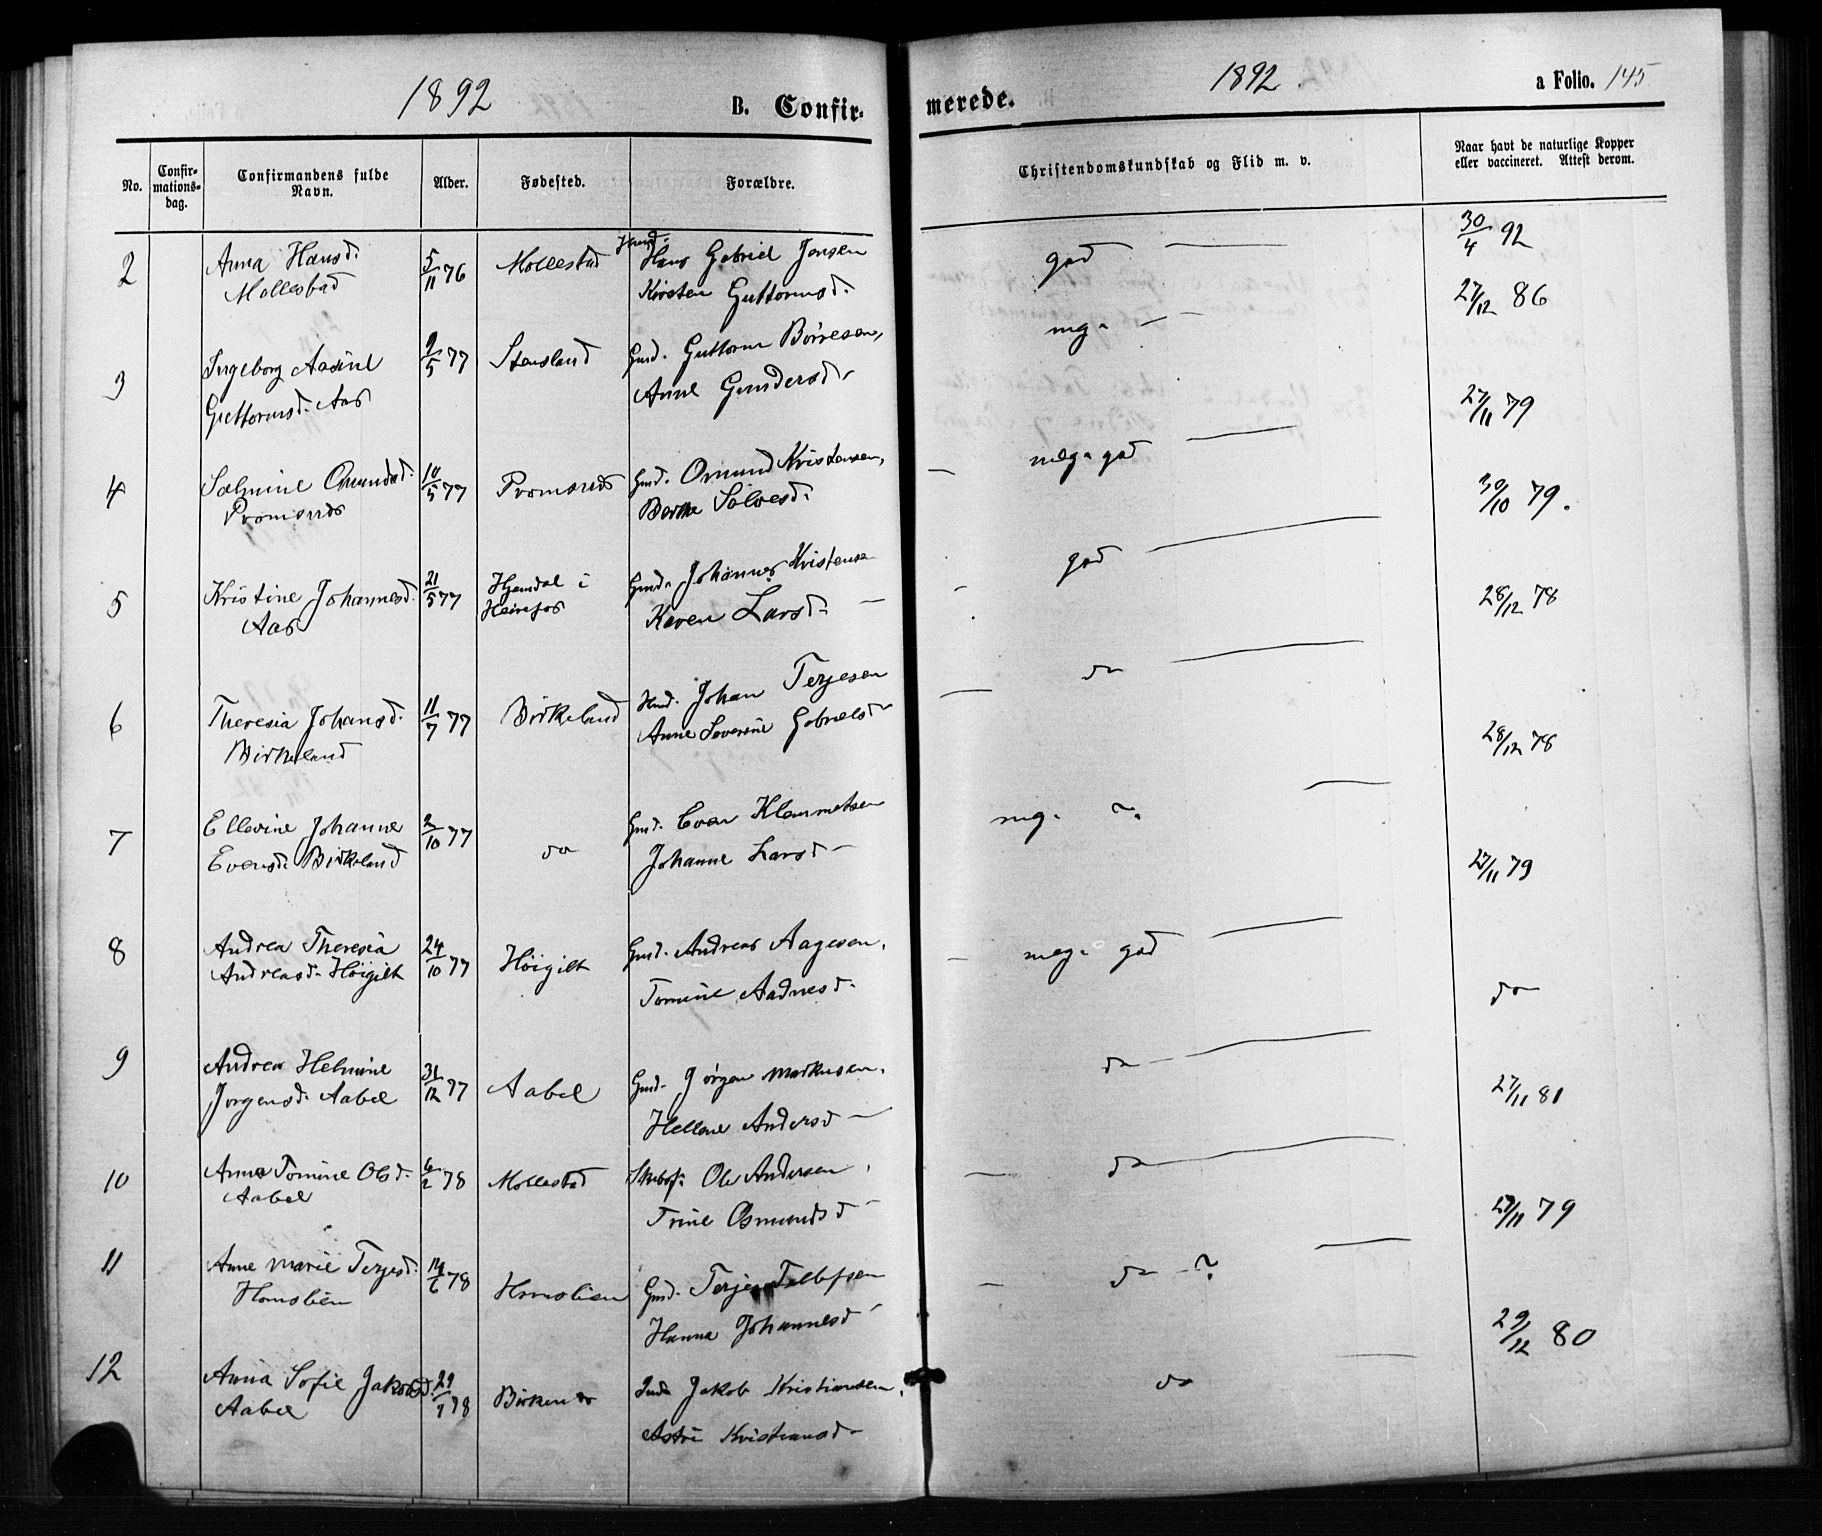 1892
B. Confir-
No.
Confir-
mations-
dag.
Confirmandens fulde
Navn.
Alder.
Fødested.
Forældre.
2
Anna Hansd.
Mollestad
5/11 76
Mollestad
Hans Gabriel Jensen
Kirsten Guttormsd.
3
Ingeborg Aasine
Guttormsd. Aas
9/5 77
Stensland
Gmd. Guttorm Børresen,
Anne Gundersd.
4
Salmine Omundsd.
10/5 77
Gmd. Omund Kristensen,
Berthe Salvesd.
5
Kristine Johannesd.
Aas
21/5 77
Hjemdal i
Heirefos
Gmd. Johannes Kristensen
Karen Larsd.
6
Theresia Johansd.
Birkeland
11/7 77
Birkeland
Hmd. Johan Terjesen
Anne Severine Gabrielsd.
7
Ellevine Johanne
Evensd. Birkeland
2/10 77
do
Gmd. Even Klemmetsen
Johanne Larsd.
8
Andrea Theresia
Andreasd. Høigilt
24/10 77
Høigilt
Gmd. Andreas Aagesen,
Tomine Aadnesd.
9
Andrea Helmine
Jørgensd. Aabel
31/12 77
Aabel
Gmd. Jørgen Markusen,
Hellene Andersd.
10
Anna Tomine Olsd.
Aabel
6/2 78
Mollestad
Ole Andersen,
Trine Osmundsd
11
Anne Marie Terjesd.
Homslien
14/6 78
Homslien
Gmd. Terje Tellefsen
Hanna Johannesd
12
Anna Sofie Jakobsd.
Aabel
29/7 78
Jakob Kristiansen,
Astri Kristiansd.
merede.
1892.
a Folio. 145
Christendomskundskab og Flid m. v.
Naar havt de naturlige Kopper
eller vaccineret. Attest derom.
god
30/4 92
mg.
27/12 86
meg. god
27/11 79
god
30/10 79.
do
28/12 78
mg. ?
28/12 78
meg. god
27/11 79
do
do
do
27/11 81
do - ?
27/11 79
do
29/12 80